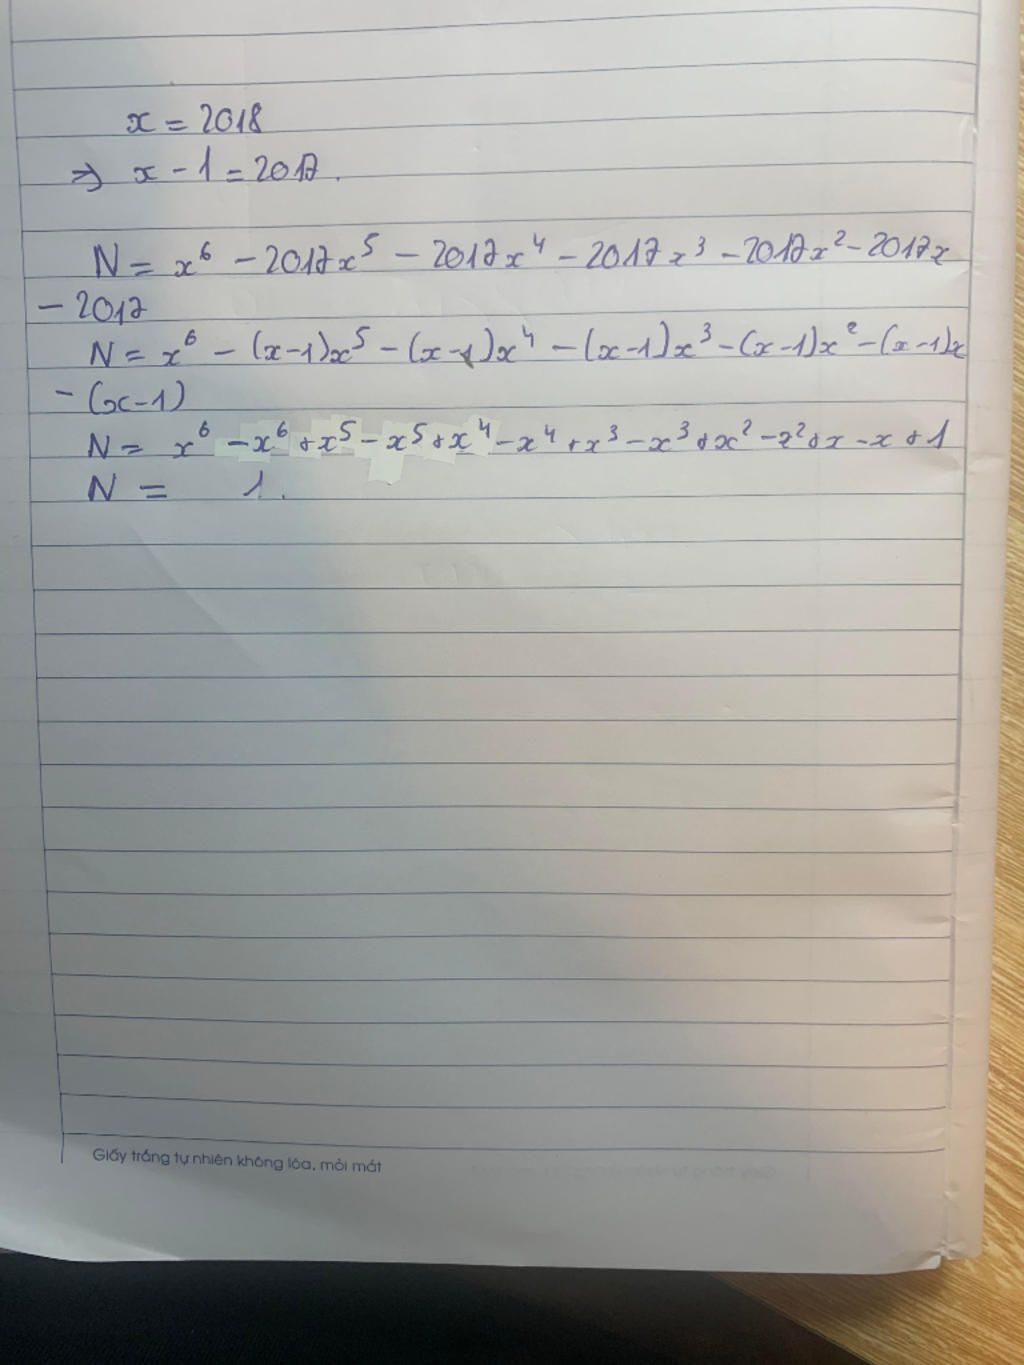 x = 2018
⇒ x - 1 = 2017.
N = x⁶ - 2017x⁵ - 2017x⁴ - 2017x³ - 2017x² - 2017x
- 2017
N = x⁶ - (x-1)x⁵ - (x-1)x⁴ - (x-1)x³ - (x-1)x² - (x-1)x
- (x-1)
N = x⁶ - x⁶ + x⁵ - x⁵ + x⁴ - x⁴ + x³ - x³ + x² - x² + x - x + 1
N = 1.
Giấy trắng tự nhiên không lóa, mỏi mắt